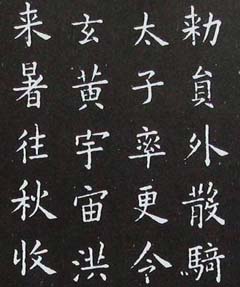 勑貟外散騎
太子率更令
玄黃宇宙洪
来暑往秋收